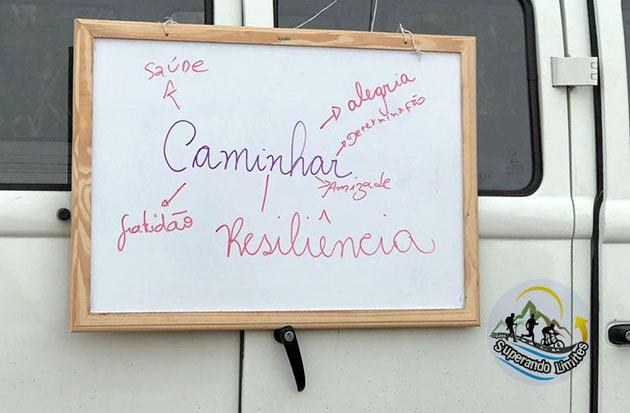 Saúde
alegria
Determinação
Caminhar
Amizade
Gratidão
Resiliência
Superando Limites